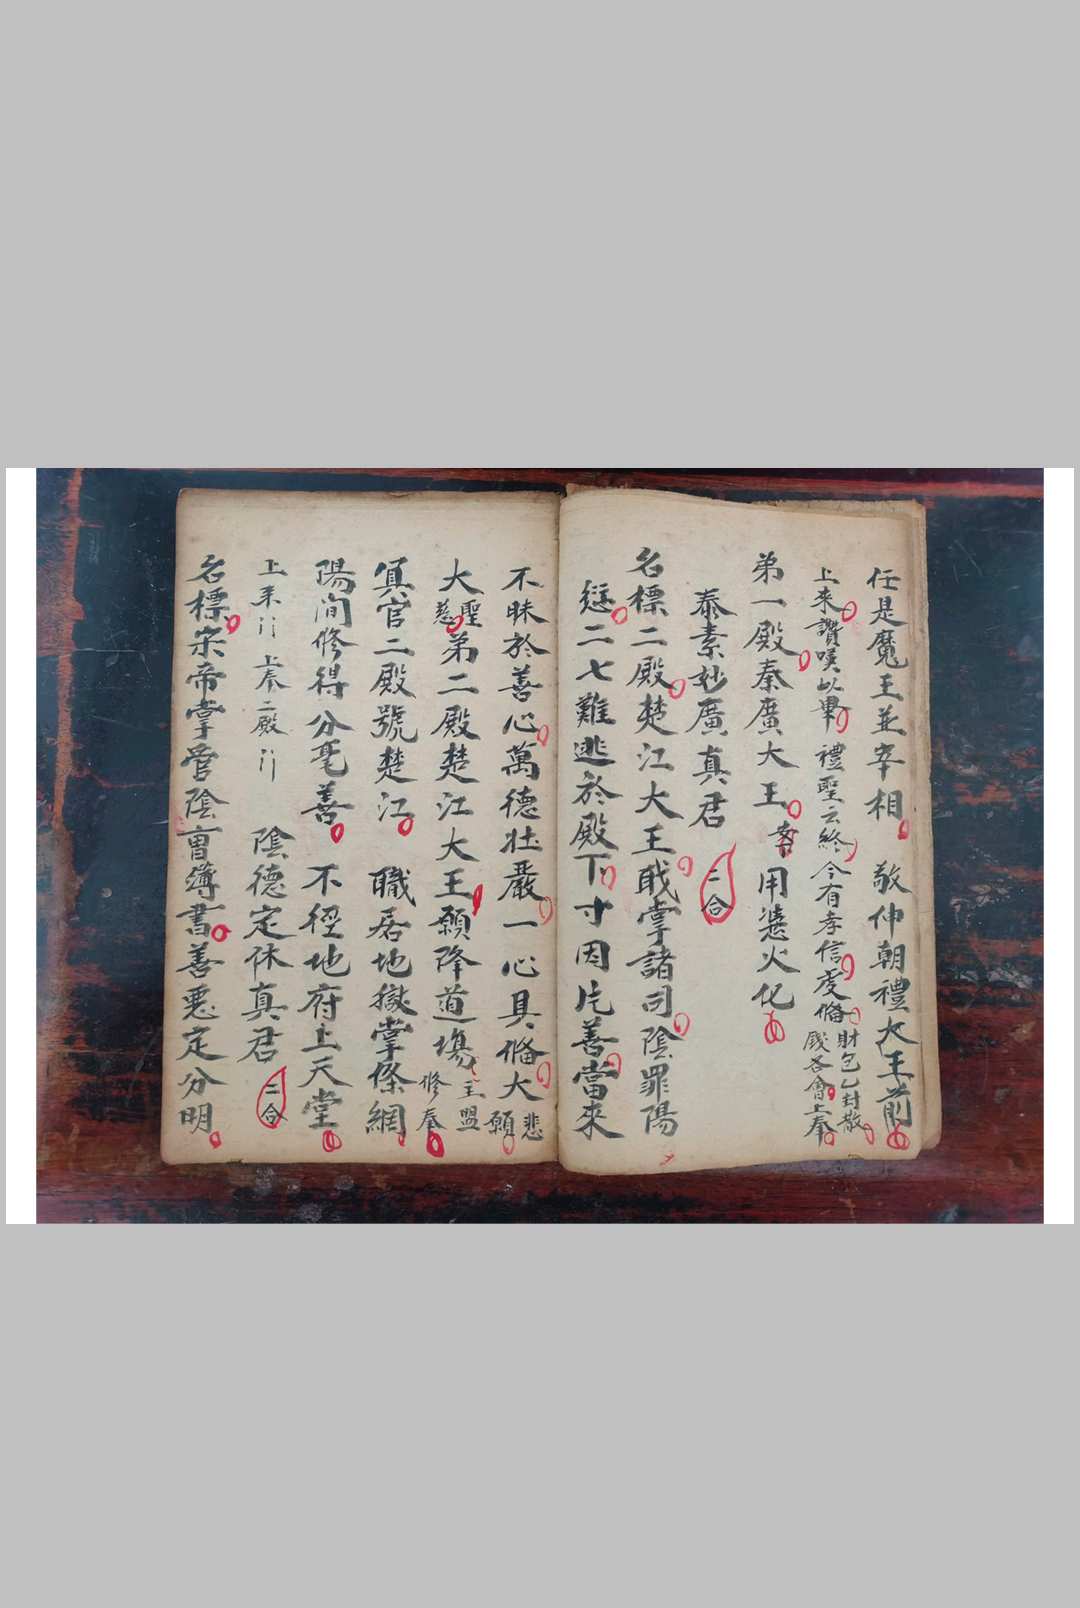 任是魔王並宰相 敬伸朝禮大王前
上來讚嘆以畢 禮聖云終 今有孝信虔俻 財包乙封散
殿各會上奉
第一殿秦廣大王 用憑火化
泰素妙廣真君 二合
名標二殿楚江大王職掌諸司陰罪陽
愆二七難逃於殿下寸因片善當來
不昧於善心萬德壯嚴一心具俻大悲願
大聖慈第二殿楚江大王願降道塲 主盟修奉
冥官二殿號楚江 職居地獄掌條綱
陽間修得分毫善 不徑地府上天堂
上来 上奉二殿 陰德定休真君 二合
名標宋帝掌管陰曹簿書善惡定分明